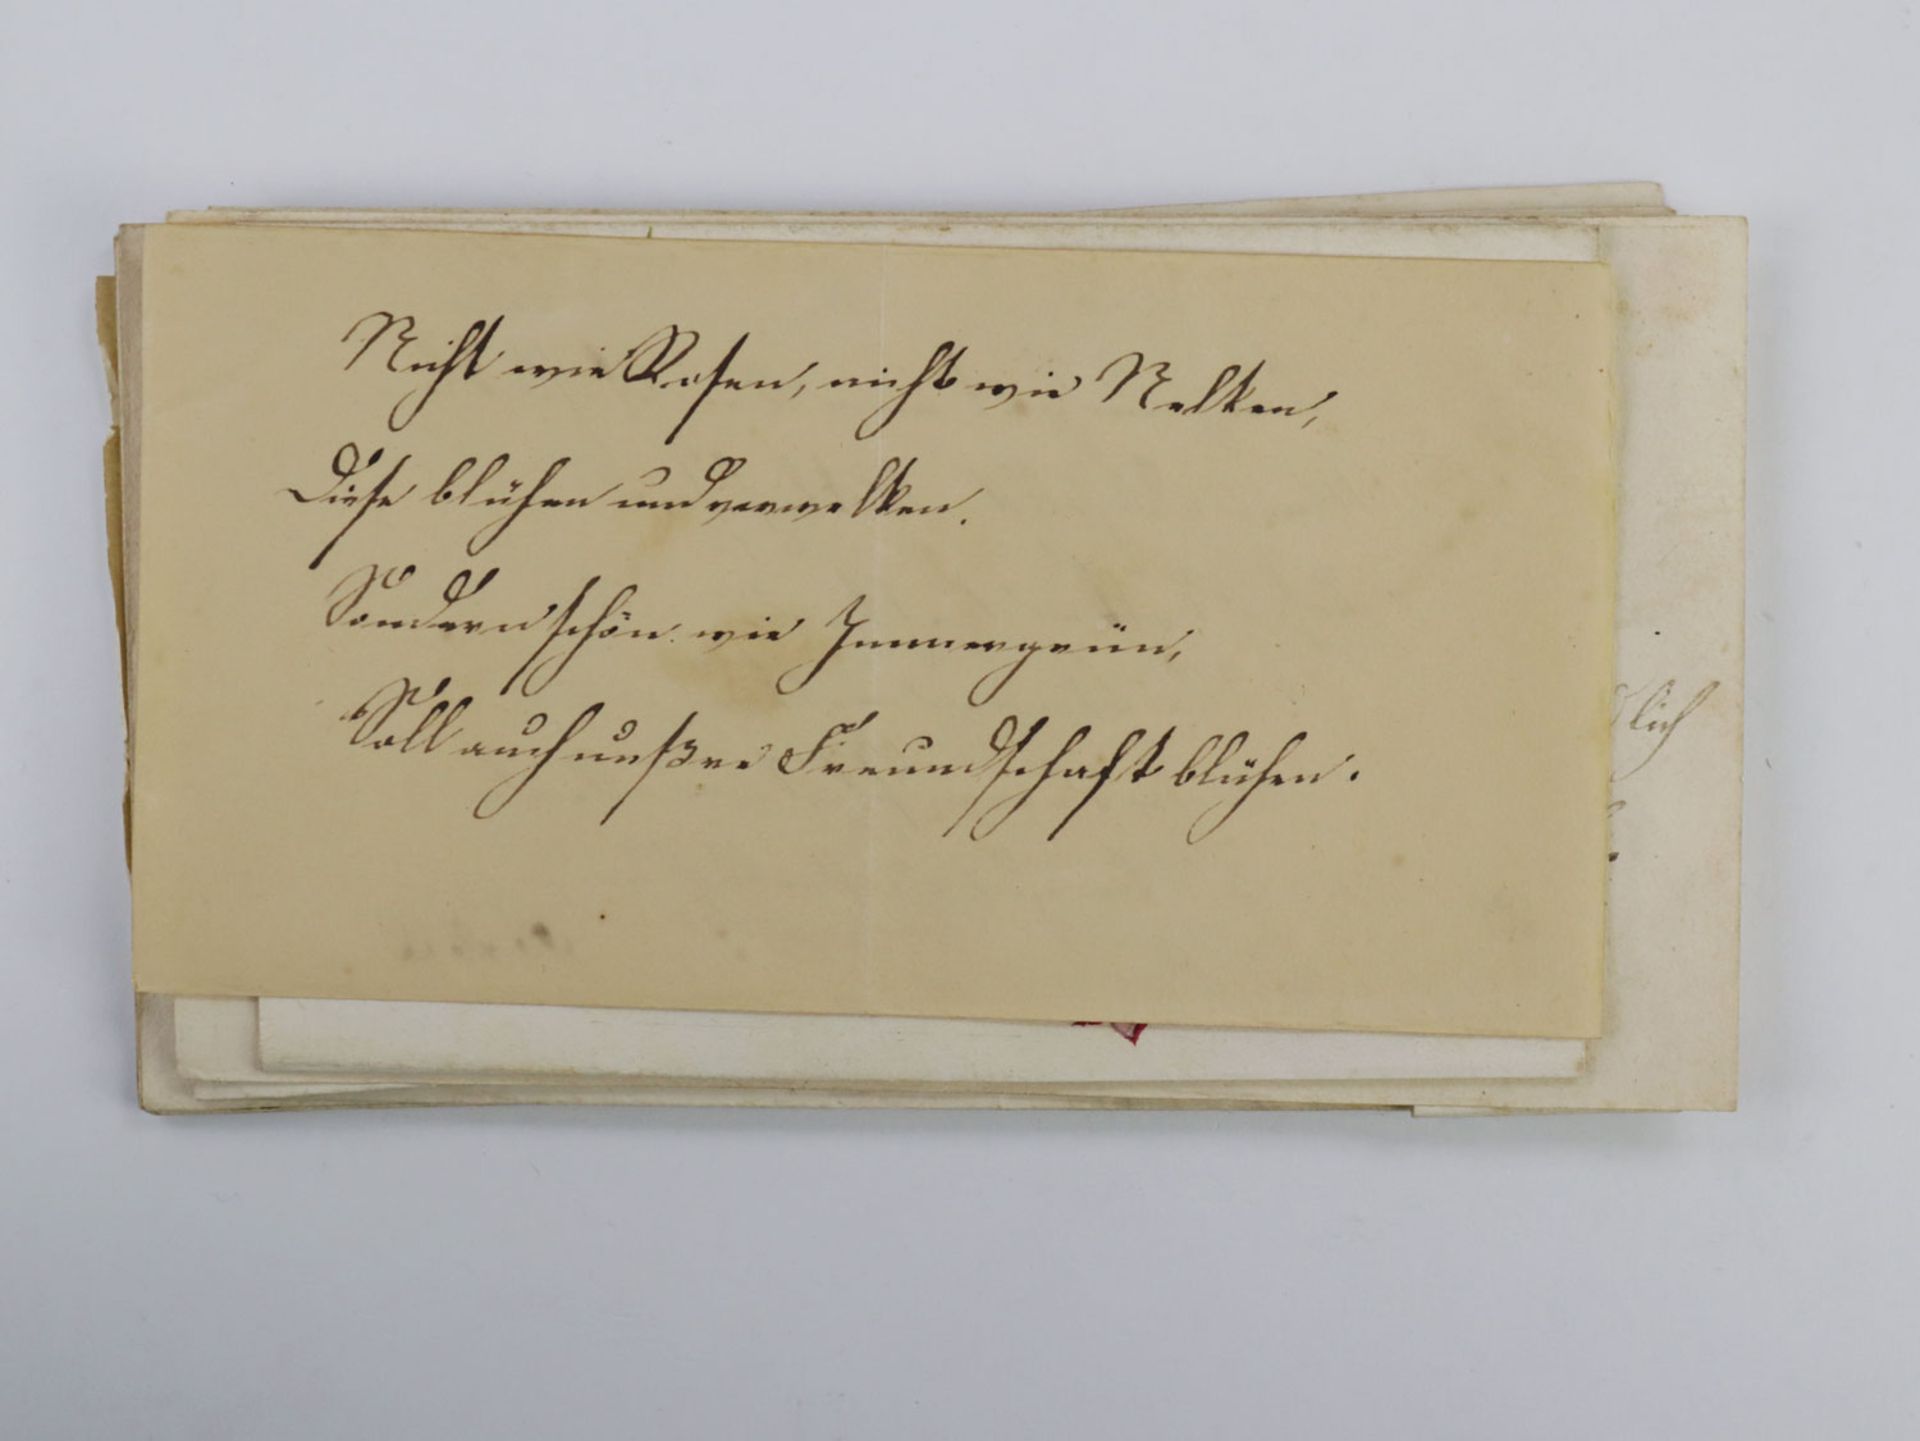 Nicht wie Rosen, nicht wie Nelken,
Diese blühen und verwelken.
Sondern schön wie Immergrün,
Soll auch unßre Freundschaft blühen.
dlich